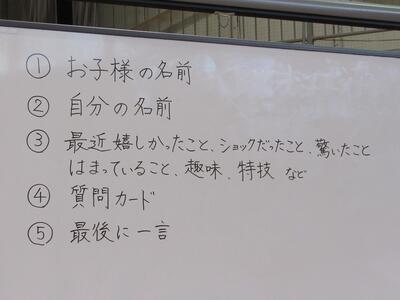 ① お子様の名前
② 自分の名前
③ 最近嬉しかったこと、ショックだったこと、驚いたこと
はまっていること、趣味、特技 など
④ 質問カード
⑤ 最後に一言